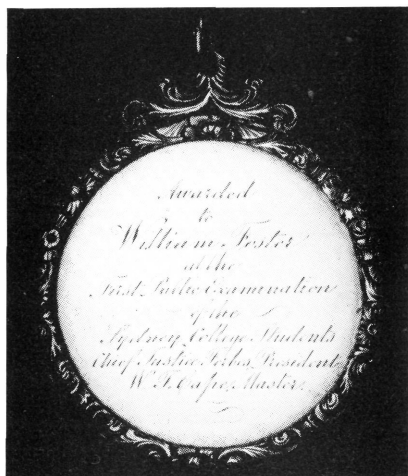 Awarded
to
William Foster
at the
First Public Examination
of the
Sydney College Students
Chief Justice Forbes, President
W. T. Cape, Master.